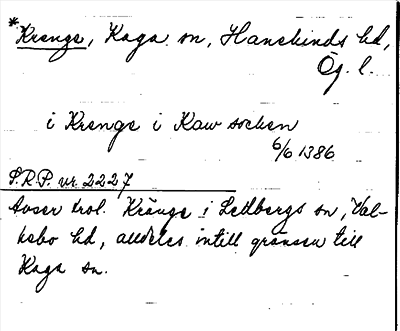 *Krenge, Kaga sn, Hanekinds hd,
Ög. l.
i Krenge i Kaw socken
6/6 1386
S.R.P. nr. 2227
Avser trol. Kränge i Ledbergs sn, Val-
kebo hd, alldeles intill gränsen till
Kaga sn.